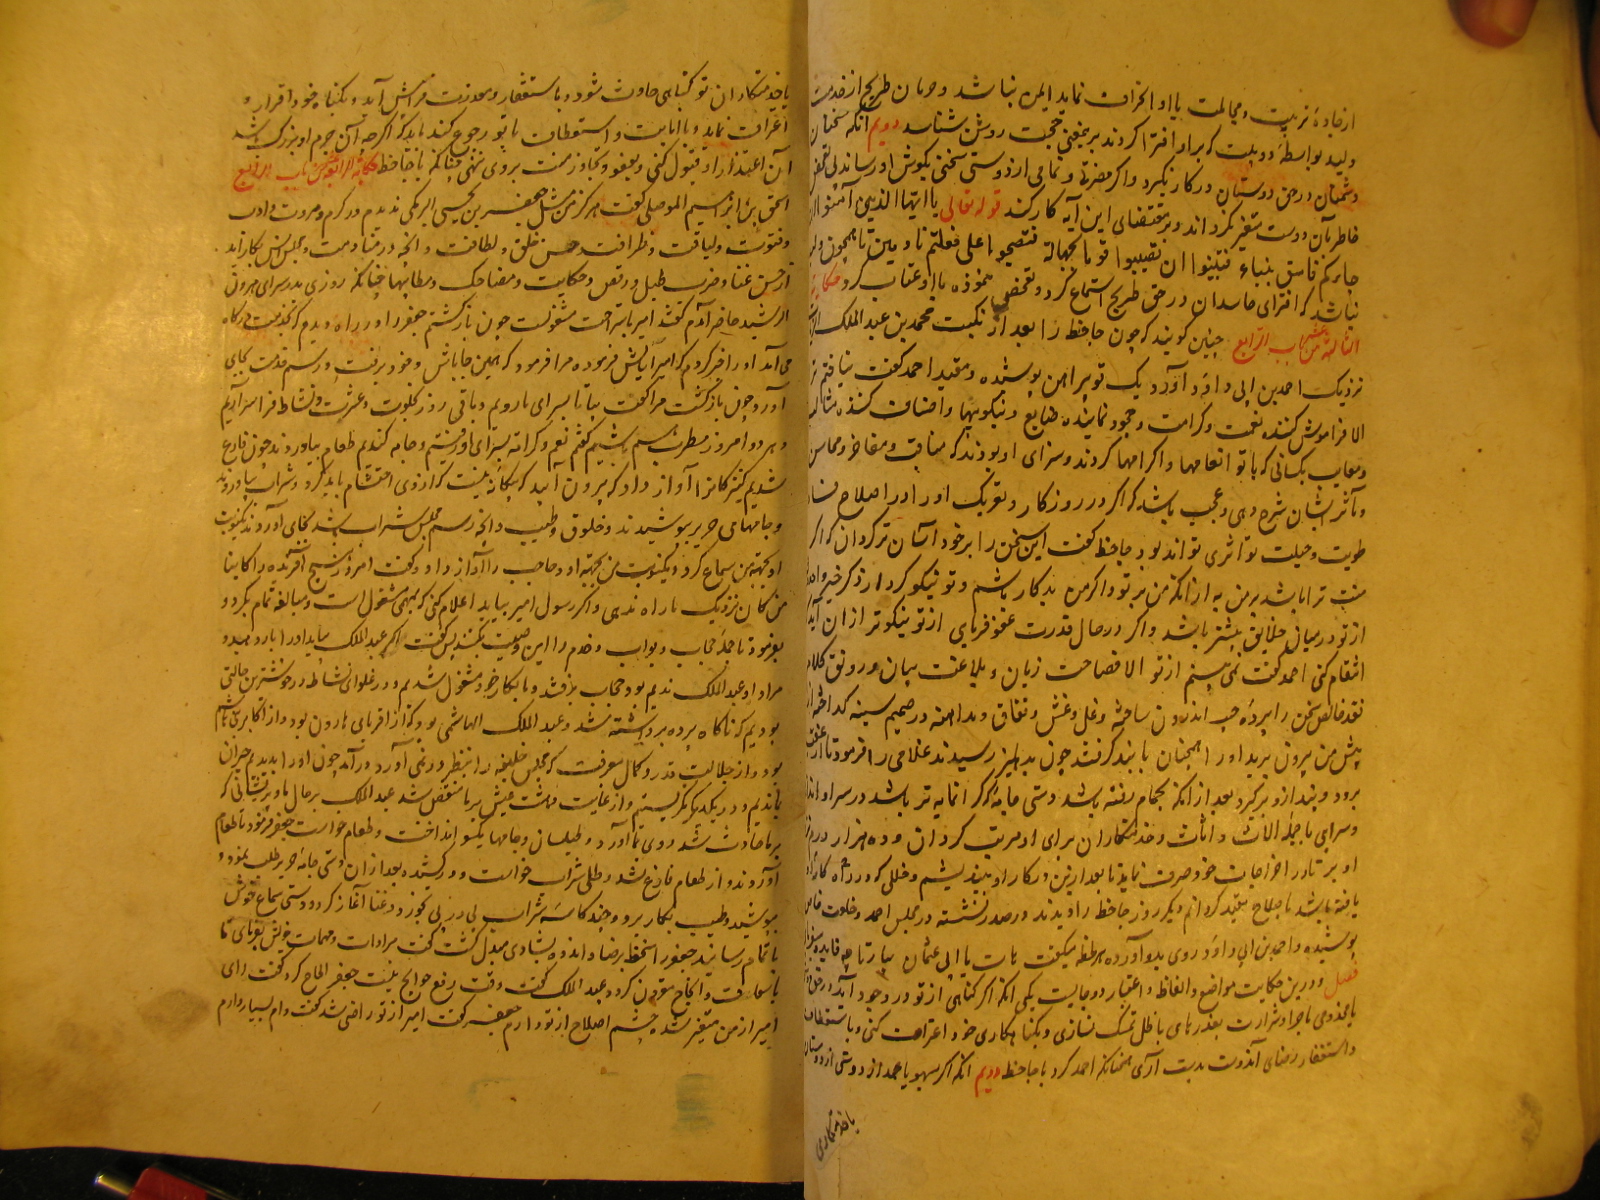 از جادهٔ تربیت و مجالست یا او انحراف نماید ایمن نباشد و حرمان طریح از خدمت
ولید بواسطهٔ دو بیت که بر او افترا کردند بر یمعنی حجت روشن شناسد دویم آنکه سخنان
دشمنان در حق دوستان در کار نگیرد و اگر مضرتی و نمامی از دوستی سخنی بگوش او رساند بی تفحص
خاطر بآن دوست متغیر نگرداند و بر مقتضای این آیه کار کند قوله تعالی یا ایها الذین آمنوا ان
جاءکم فاسق بنباء فتبینوا ان تصیبوا قوما بجهالة فتصبحوا علی ما فعلتم نادمین تا همچون ولید
نباشد که افترای حاسدان در حق طریح استماع کرد و تفحص ننموده با او عتاب کرد حکایة
الثالثة من الباب الرابع چنین گویند که چون جاحظ را بعد از نکبت محمد بن عبد الملک الزیات
نزدیک احمد بن ابی داؤد آوردند یک تو پیراهن پوشیده و مقید احمد گفت نیافتم ترا
الا فراموش کننده نعمت و کرامت و جحود نماینده صنایع و نیکوییها و اضافت کننده مثالب
ومعایب بکسانی که با تو انعامها و اکرامها کردند و سزای او بودند که مناقب و مفاخر و محاسن
و مآثر ایشان شرح دهی و عجب باشد که اگر در روزگار و تحریک او را در اصلاح فساد
طویت و حیلت تو اثری تواند بود جاحظ گفت این سخن را بر خود آسان تر گردان که اگر
منت ترا باشد بر من به از آنکه من بر تو و اگر من بدکار باشم و تو نیکوکردار ذکر خیر
از تو در میان خلایق بیشتر باشد و اگر در حال قدرت عفو فرمایی از تو نیکوتر از آن آید که
انتقام کنی احمد گفت نمی بینم از تو الا فصاحت زبان و بلاغت بیان و رونق کلام
نقد خالص سخن را پرده چپ اندرون ساخته و غل و غش و نفاق و مداهنه در صمیم سینه گداخته از
پیش من بیرون برید او را همچنان با بند گرفتند چون بدهلیز رسیدند غلامی را فرمود تا
برود و بند ازو برگیرد بعد از آنکه بحمام رفته باشد دستی جامه که گرانمایه تر باشد در سر او اندازد
و سرای با جمله آلات و اثاث و خدمتکاران برای او مرتب گردان و ده هزار درم نزد
او بر تا در اخراجات خود صرف نماید تا بعد ازین در کار او بیندیشم و خللی که در راه کار او
یافته باشد باصلاح مقید گردانم دیگر روز جاحظ را دیدند در صدر نشسته در مجلس احمد و خلعت فاخر
پوشیده و احمد بن ابی داؤد روی بدو آورده هر لحظه میگفت هات یا ابی عثمان بیار تا چه فایده
فصل و درین حکایت مواضع و الفاظ و اعتبار دو جایست یکی آنکه اگر گناهی از تو در وجود آید در حق
با مخدومی با جرأت و شرارت بعذرهای باطل تمسک نسازی و بگناهکاری خود اعتراف کنی و باستعطاف
و استغفار رضای آندوست بدست آری همچنانکه احمد کرد با جاحظ دویم آنکه اگر بسهو یا عمد از دوستی از دوستان
یا خدمتکاری
یا خدمتکاران تو گناهی حادث شود و باستغفار و معذرت فرا پیش آید و بگناه خود اقرار و
اعتراف نماید و با انابت و استعطاف با تو رجوع کند باید که اگر چه آن جرم او بزرگ باشد
آن اعتذار او قبول کنی و بعفو و تجاوز منت بر وی نهی چنانکه با جاحظ حکایة الرابعة من باب الرابع
اسحق بن ابراهیم الموصلی گفت هرگز من مثل جعفر بن یحیی البرمکی ندیدم در کرم و مروت و ادب
و فتوت و لیاقت و ظرافت و حسن خلق و لطافت و انچه در منادمت و مجلس انس بکار آید
از حسن غنا و ضرب طبل و رقص و حکایت و مضاحک و مطایبها چنانکه روزی بدر سرای هرون
الرشید حاضر آمدم گفتند امیر باستراحت مشغولست چون باز گشتم جعفر را در راه دیدم که بخدمت درگاه
می آمد او را خبر کردم که امیر آسایش فرموده مرا فرمود که همین جا باش و خود برفت و رسم خدمت بجای
آورد و چون بازگشت مرا گفت بیا تا بسرای ما رویم و باقی روز بخلوت و عشرت و نشاط فرا سر آریم
و هر دو امروز مطرب هم باشیم گفتم نعم و کرامة بسرای او رفتیم و جامه کندیم طعام بیاوردند چون فارغ
شدیم کنیزکانرا آواز داد که بیرون آیید که بیگانه نیست که از وی احتشام باید کرد و شراب بیاوردند
و جامهای حریر بپوشیدند و خلوق و طیب و انچه رسم مجلس شراب باشد بجای آوردند یکنوبت
او بجهة من سماع کرد و یکنوبت من بجهة او و حاجب را آواز داد و گفت امروز هیچ آفریده را کاینا
من کان نزدیک ما راه ندهی و اگر رسول امیر بیاید اعلام کنی که بمهمی مشغول است و مبالغه تمام بکرد و
بفرمود تا جمله حجاب و بواب و خدم را این وصیت بکنند پس گفت اگر عبد الملک بیاید او را بار دهید و
مراد او عبد الملک ندیم بود حجاب برفتند و ما بکار خود مشغول شدیم و در غلوای نشاط در خوشترین حالتی
بودیم که ناگاه پرده برداشته شد و عبد الملک الهاشمی بود که از اقربای هارون بود و از اکابر بنی هاشم
بود و از جلالت قدر و کمال معرفت که مجلس خلیفه را بنظر در نمی آورد در آمد چون او را بدیدیم حیران
بماندیم و در یکدیگر نگریستیم و از غایت دهشت عیش بر ما منغص شد عبد الملک بر حال ما و پریشانی که
بر ما حادث شد روی بما آورد و طیلسان و جامها یکسو انداخت و طعام خواست جعفر فرمود تا طعام
آوردند و از طعام فارغ شد رطلی شراب خواست و در کشید بعد از آن دستی جامه حریر طلب نمود و
بپوشید و طیب بکار برد و چند کاسه شراب پی در پی تجرع و غنا آغاز کرد و دستی سماع خوش
باتمام رسانید جعفر را سخط برضا و اندوه بشادی مبدل گشت گفت مرادات و مهمات خویش بفرمای تا
باسعاف و انجاح مقرون گردد عبد الملک گفت وقت رفع حوایج نیست جعفر الحاح کرد گفت رای
امیر از من متغیر شده چشم اصلاح از تو دارم جعفر گفت امیر از تو راضی شد گفت وام بسیار دارم